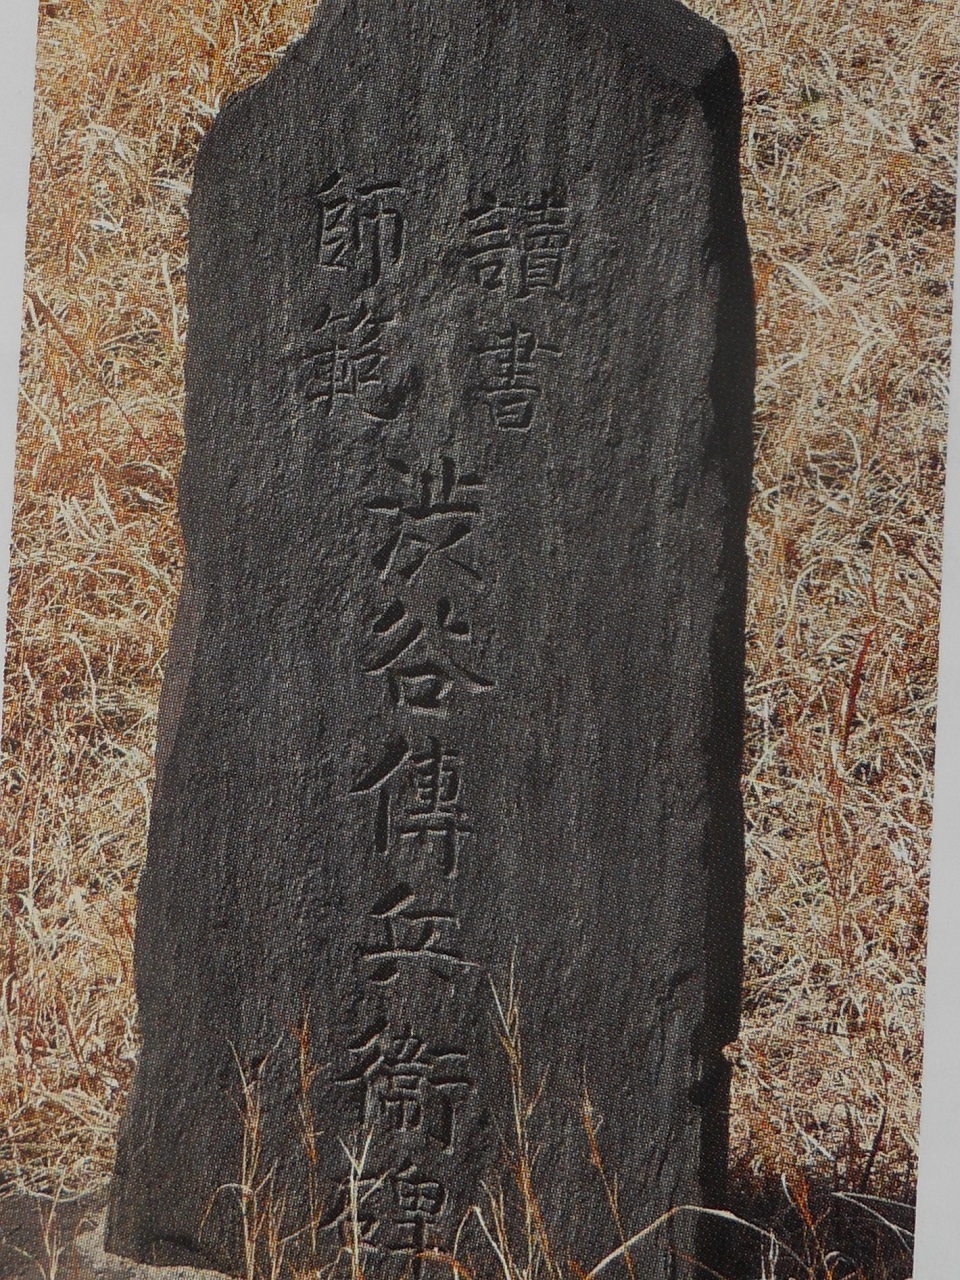 讀書
師範
渋谷傳兵衛碑